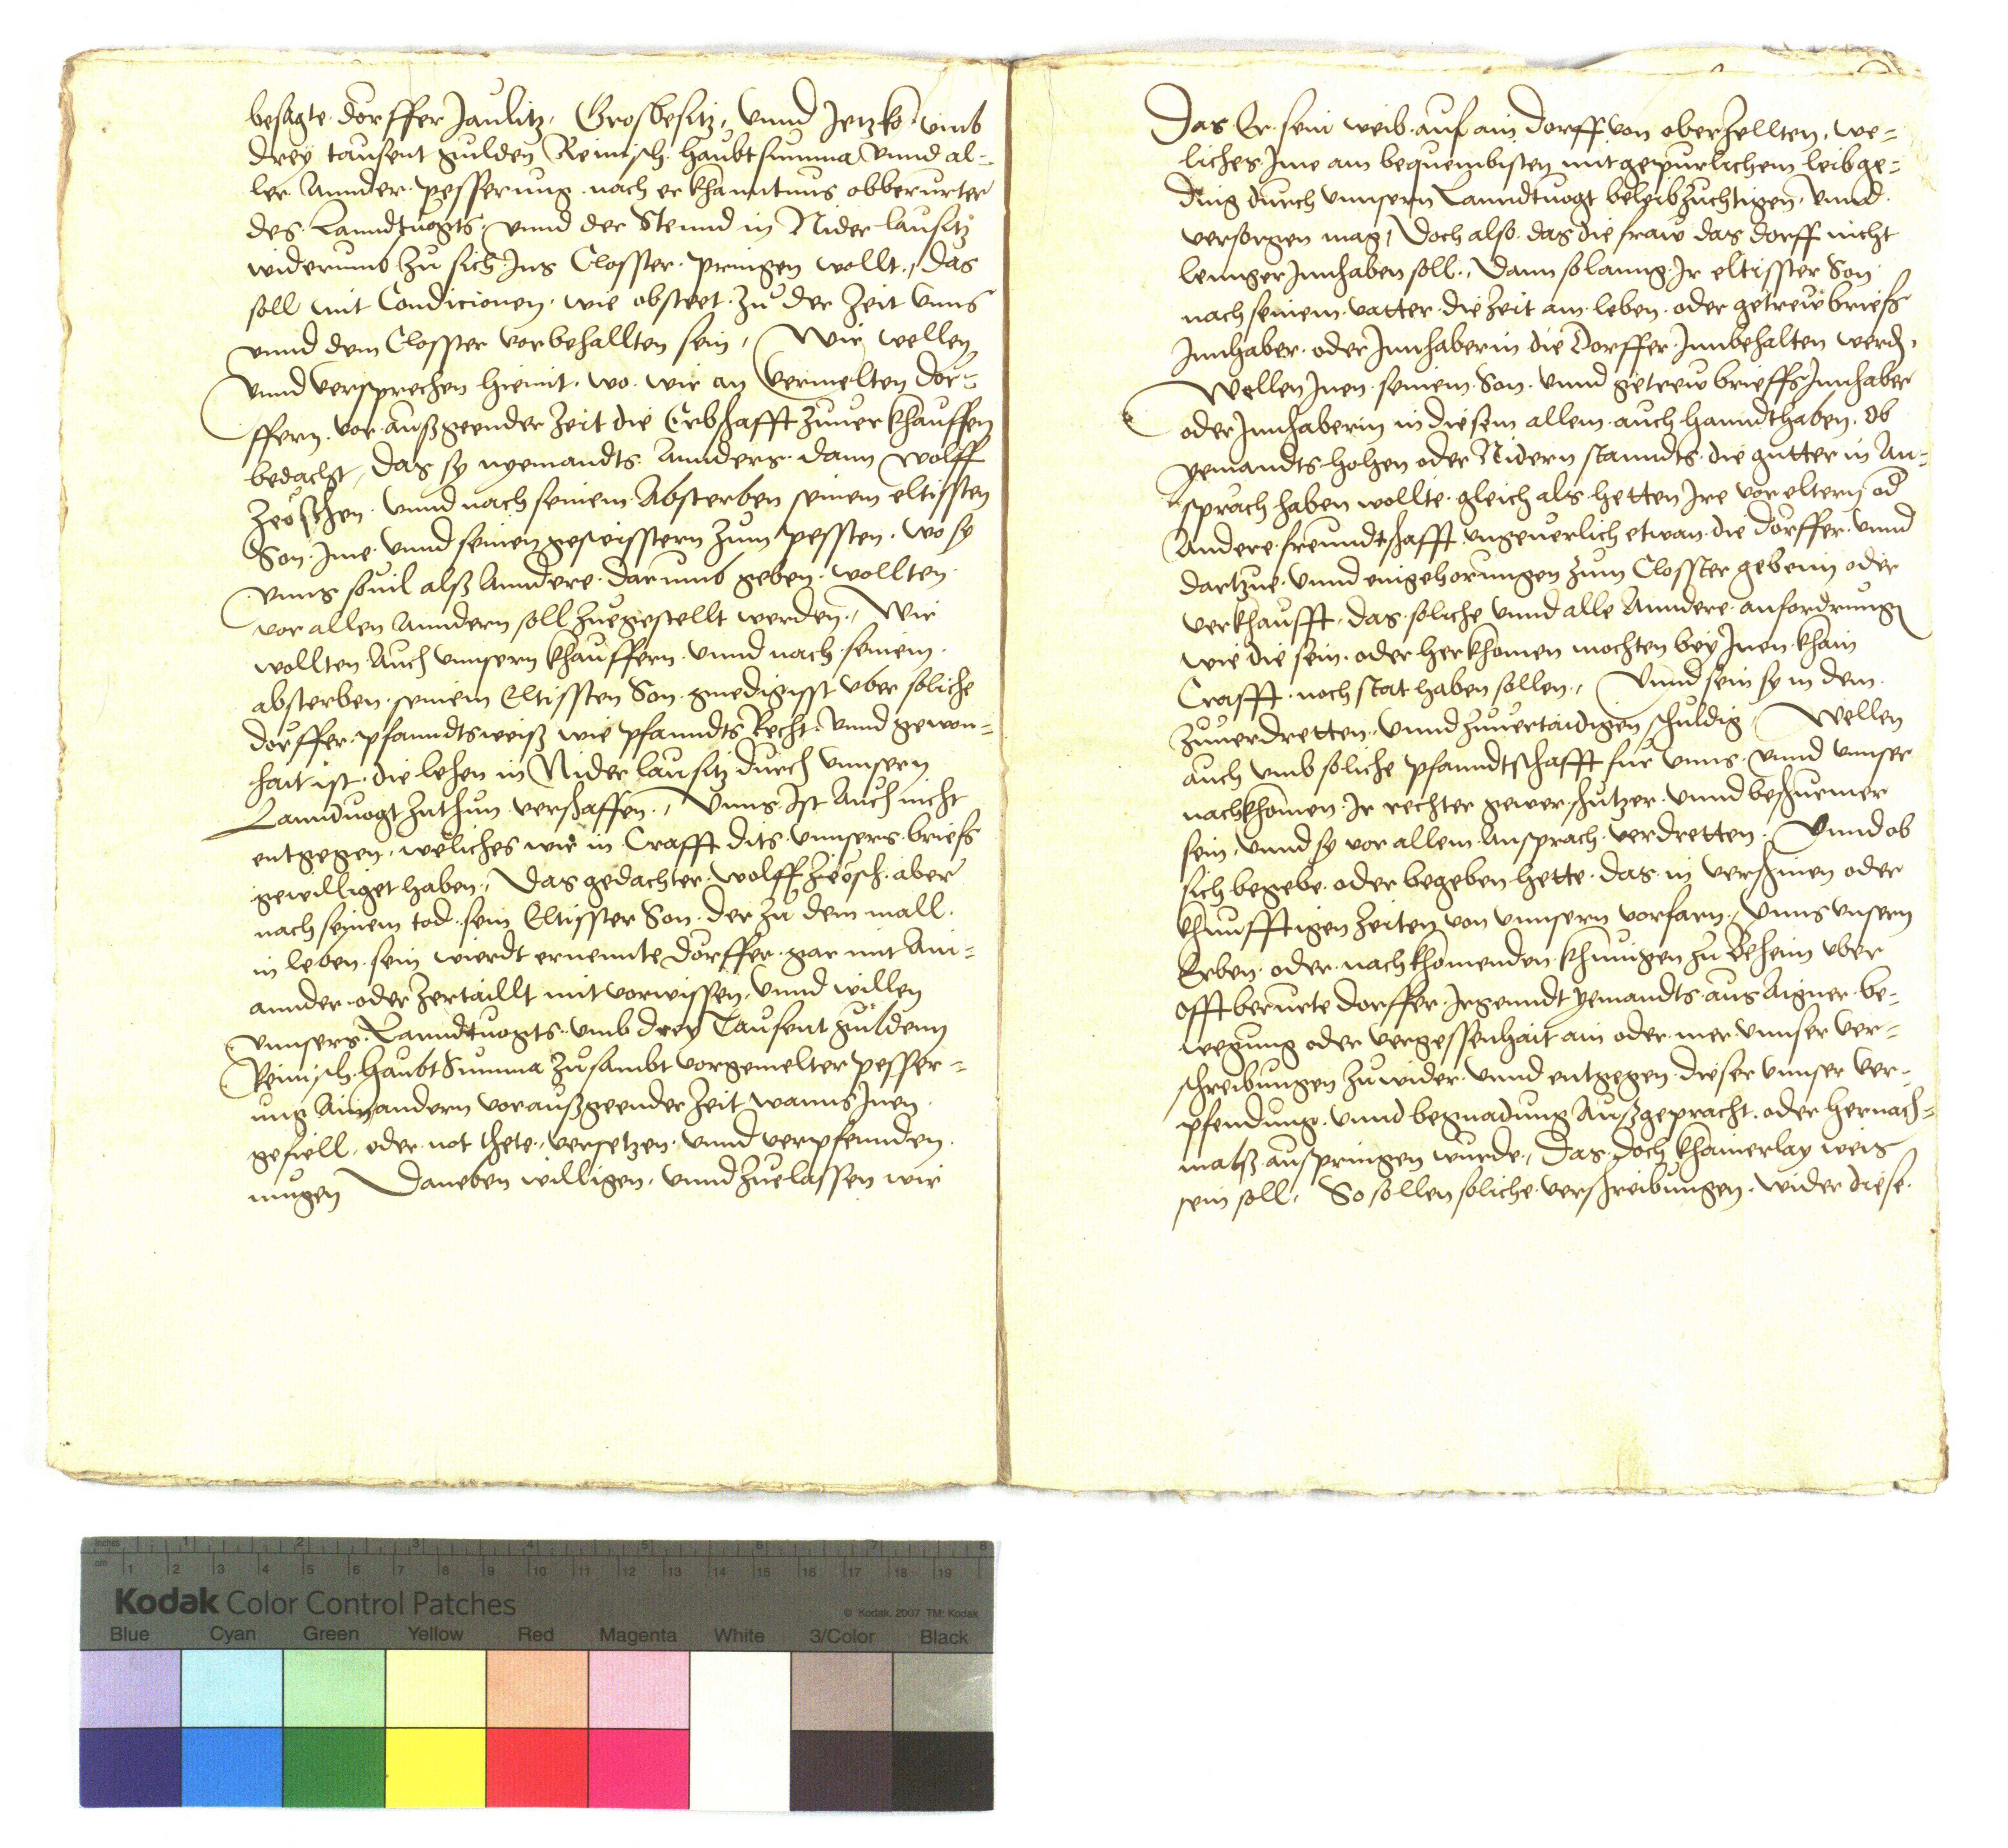 besagte dorffer Jaulitz, Grosbesitz, vnnd Jetzko vmb
drey tausent gulden Reinisch haubtsumma vnnd al-
ler Annder pesserung nach erkhanntnus obberurter
des Lanndtuogts vnnd der Stennd in Nider lausitz
widerumb zu sich Ins Closster pringen wollt, das
soll mit Condicionen wie obsteet zu der Zeit vnns
vnnd dem Closster vorbehallten sein, Wir wellen
vnnd versprechen hiemit wo wir an vermelten dor-
ffern vor außgeender Zeit die Erbschafft zuuerkhauffen
bedacht, das sy nyemandts Annders dann wolff
Zeoschen vnnd nach seinem Absterben seinem eltissten
Son Ime vnnd seinen geswisstern zum pessten wo sy
vnns souil alß Anndere darumb geben wollten
vor allen Anndern soll zuegestellt werden, Wir
wollten Auch vnnsern khauffern vnnd nach seinem
absterben seinem Eltissten Son gnedigisst vber soliche
dorffer pfanndtsweiß wie pfanndts Recht vnnd gewon-
hait ist die lehen in Nider lausitz durch vnnsern
Lanndtuogt zuthun verschaffen, Vnns Ist Auch nicht
entgegen, weliches wir in Crafft dits vnnsers briefs
gewilliget haben, Das gedachter wolff Zeosch aber
nach seinem tod sein Eltisster Son der zu dem mall
in leben sein wierdt ernennte dorffer gar mit Ain-
annder oder zertaillt mit vorwissen vnnd willen
vnnsers Lanndtuogts vmb drey Tausent guldenn
Reinisch haubt Summa zusambt vorgemelter pesser-
ung Ainandern vor außgeender Zeit wanns Inen
gefiell, oder not thete, versetzen vnnd verpfennden
mugen Daneben willigen vnnd zuelassen wir
Das Er sein weib auf ain dorff von oberzellten, we-
liches Ime am bequembisten mit gepurlichem leibge-
ding durch vnnsern Lanndtuogt beleibzuchtigen vnnd
versorgen mag, Doch also das die fraw das dorff nicht
lennger Innhaben soll, Dann solanng Ir eltisster Son
nach seinem vatter die Zeit am leben oder getrew briefs
Innhaber oder Innhaberin die Dorffer Innbehalten werd,
Wellen Inen seinem Son vnnd getrew brieffs Innhaber
oder Innhaberin in diesem allem auch hanndthaben. Ob
yemandts hohen oder Nidern stanndts die gutter in An-
sprach haben wollte gleich als hetten Ire voreltern od
Andere freundtschafft vngeuerlich etwan die dorffer vnnd
dartzue vnnd eingehorungen zum Closster gebenn oder
verkhaufft, das soliche vnnd alle Anndere anfordrung
wie die sein oder herkhomen mochten bey Inen khain
Crafft noch stat haben sollen, Vnnd sein sy in dem
zuuerdretten vnnd zuuertaidigen schuldig, Wellen
auch vmb soliche pfanndtschafft fur vnns vnnd vnnser
nachkhomen Ir rechter gewer schutzer vnnd beschurmer
sein, vnnd sy vor allem Ansprach verdretten. Vnnd ob
sich begebe oder begeben hette das in verschinen oder
khunfftigen Zeiten von vnnsern vorfarn, Vnns vnsern
Erben oder nachkhomenden khunigen zu Beheim vber
offt berurte dorffer Irgenndt yemandts aus Aigner be-
wegung oder vergessenhait ain oder mer vnnser ver-
schreibungen zuwider vnnd entgegen dieser vnnser ver-
pfendung vnnd begnadung Außgepracht oder hernach-
malß auspringen wurde, Das doch khainerlay weis
sein soll, So sollen soliche verschreibungen wider diese
Kodak Color Control Patches
© Kodak, 2007 TM: Kodak
Blue Cyan Green Yellow Red Magenta White 3/Color Black